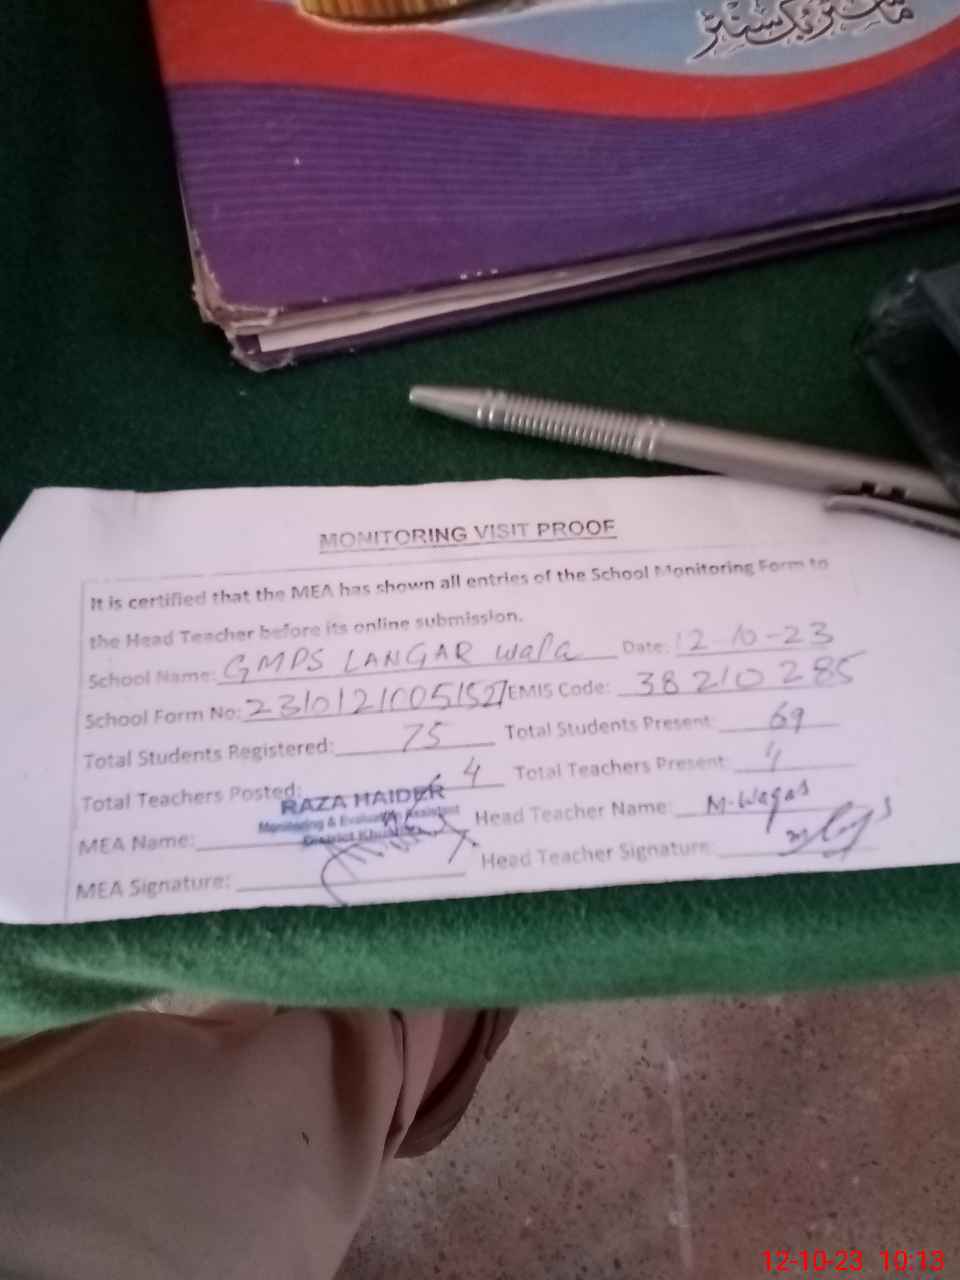 ماسٹر بک سنٹر
MONITORING VISIT PROOF
It is certified that the MEA has shown all entries of the School Monitoring Form to
the Head Teacher before its online submission.
School Name: GMPS LANGAR wala Date: 12-10-23
School Form No: 23101210051527 EMIS Code: 38210285
Total Students Registered: 75 Total Students Present: 69
Total Teachers Posted: 4 Total Teachers Present: 4
RAZA HAIDER
Monitoring & Evaluation Assistant
District
MEA Name: Head Teacher Name: M. Waqas
MEA Signature: Head Teacher Signature:
12-10-23 10:13